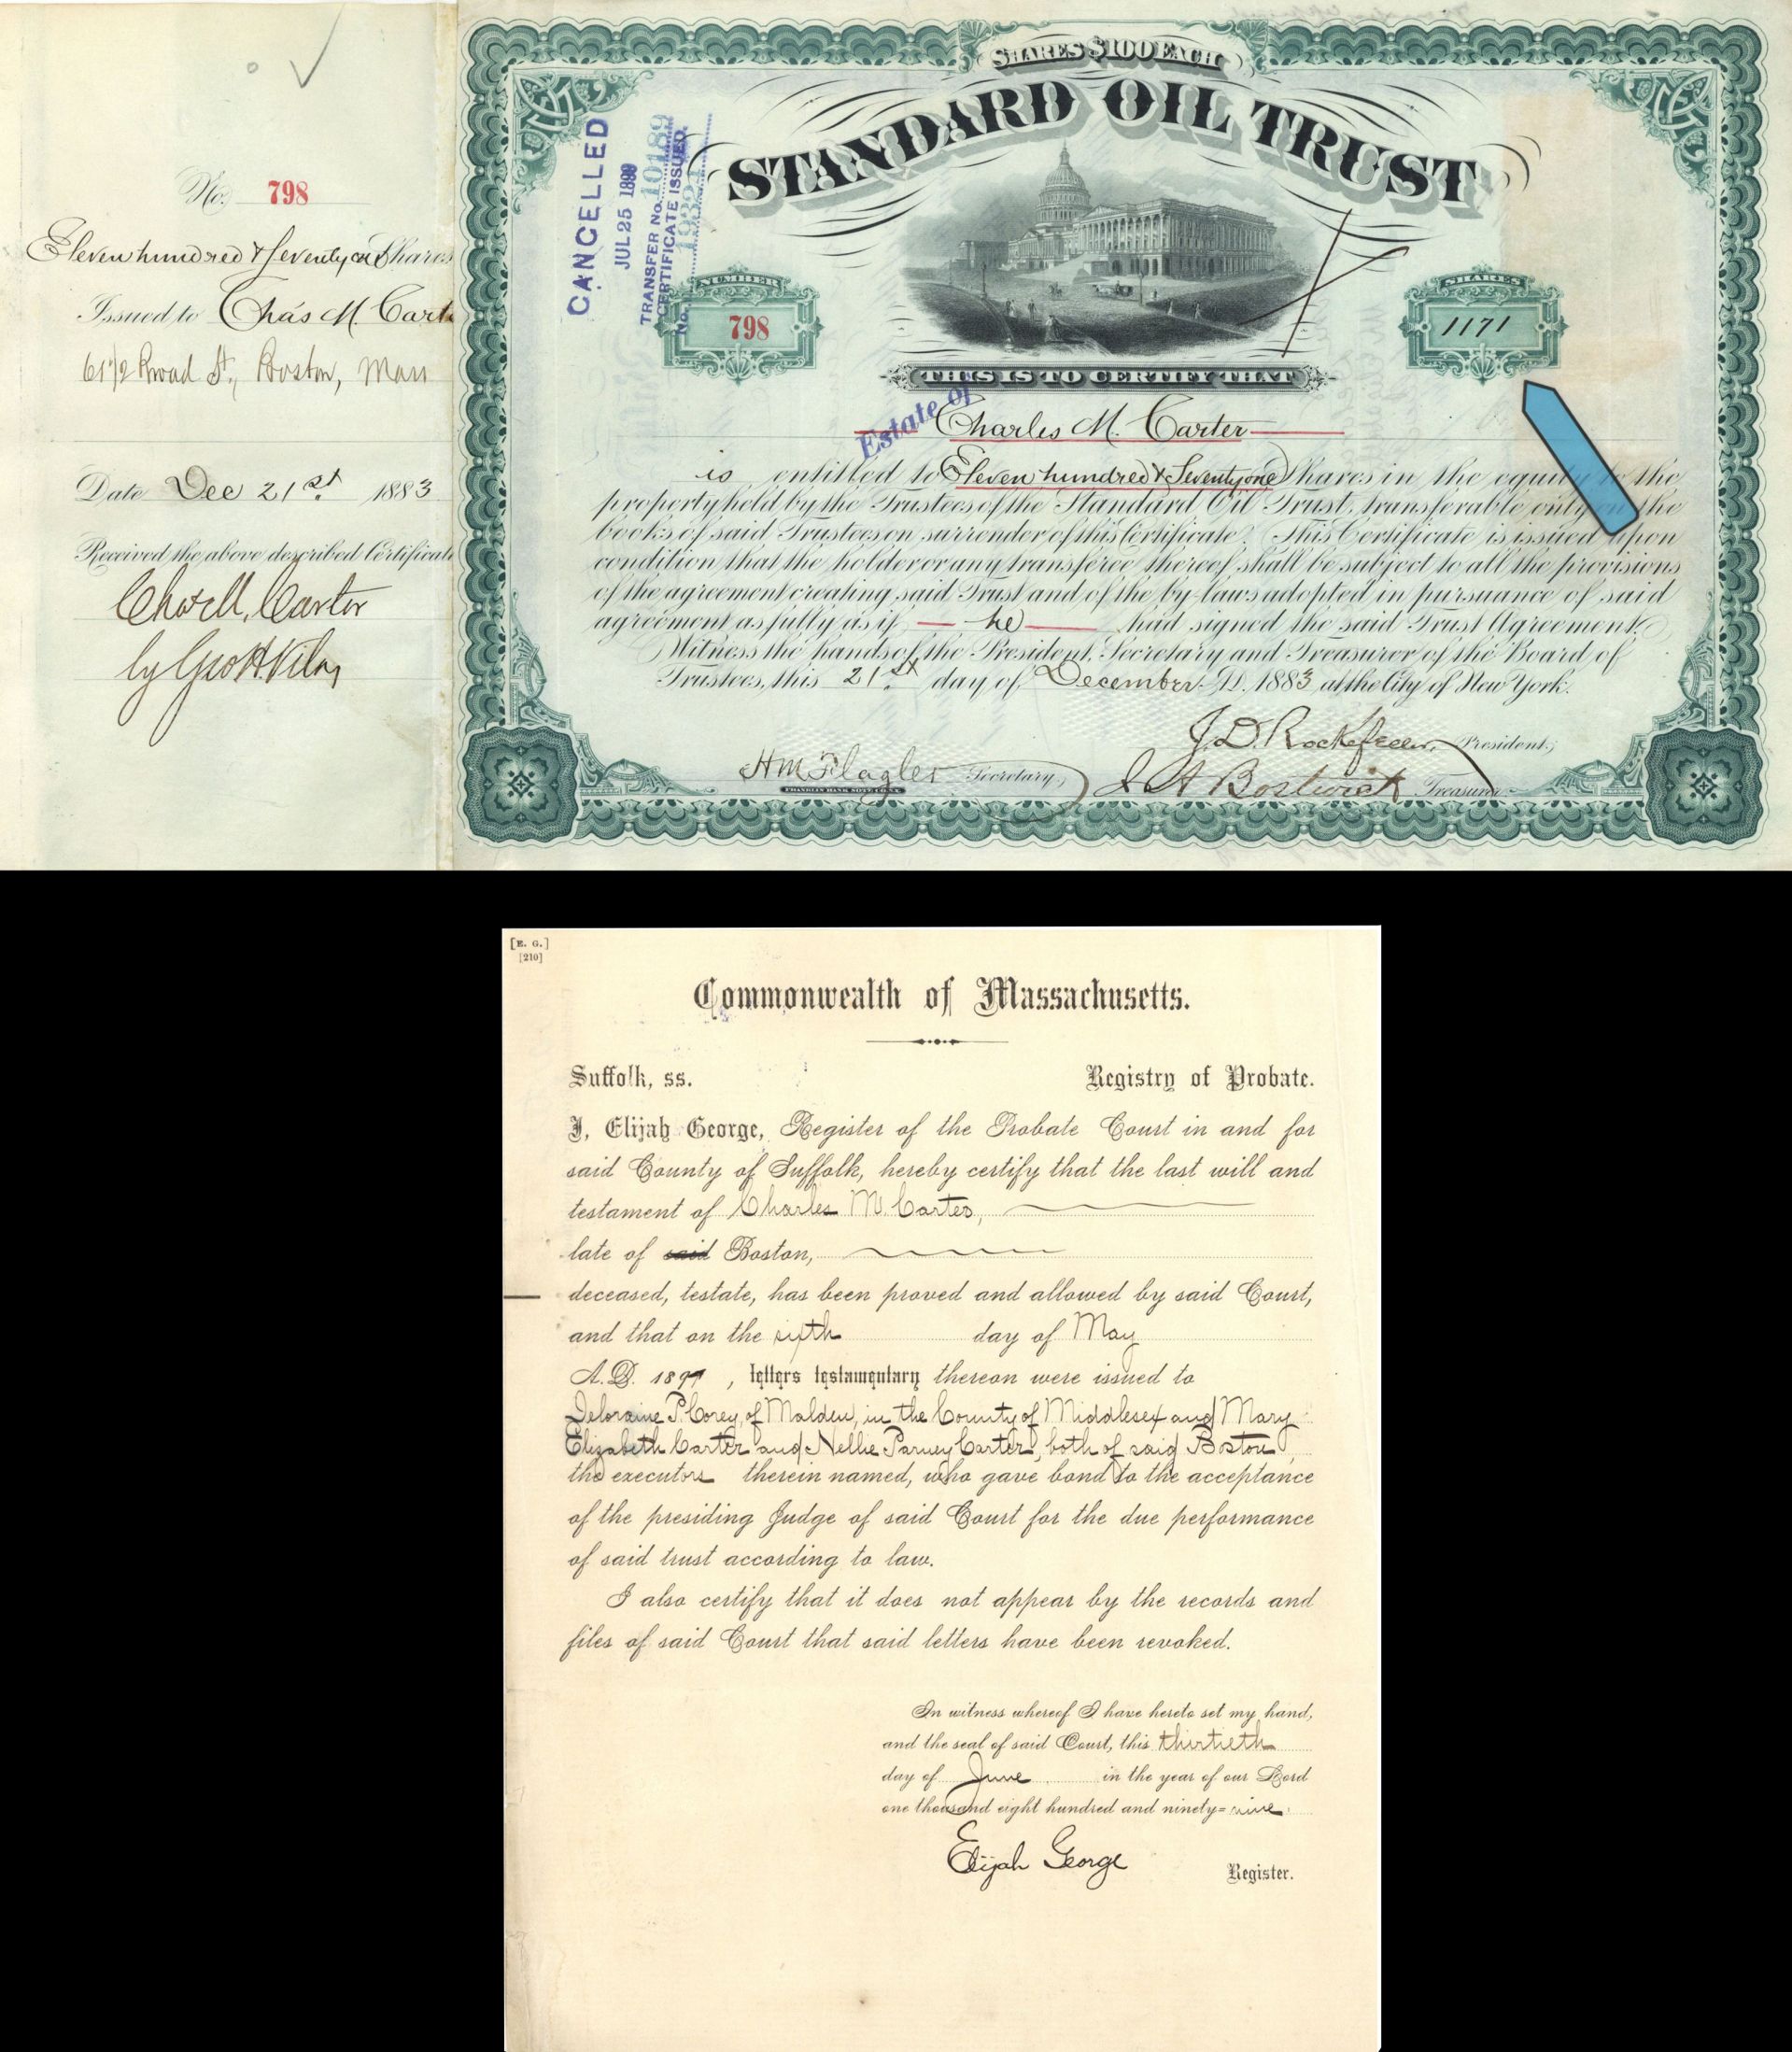 No. 798
Eleven hundred & Seventy one Shares
Issued to Chas M. Carte
61 1/2 Broad St., Boston, Mass
Date Dec 21st. 1883
Received the above described Certificate
Chas M. Carter
by Geo H.
SHARES $100 EACH
STANDARD OIL TRUST
CANCELLED
JUL 25 1899
TRANSFER No. 10189
CERTIFICATE ISSUED.
No.
NUMBER
798
SHARES
1171
THIS IS TO CERTIFY THAT
Estate of
Charles M. Carter
is entitled to Eleven hundred & Seventy one Shares in the equity to the
property held by the Trustees of the Standard Oil Trust, transferable only on the
books of said Trustees on surrender of this Certificate. This Certificate is issued upon
condition that the holder or any transferee thereof shall be subject to all the provisions
of the agreement creating said Trust and of the by-laws adopted in pursuance of said
agreement as fully as if he had signed the said Trust Agreement.
Witness the hands of the President, Secretary and Treasurer of the Board of
Trustees, this 21st. day of December A.D. 1883 at the City of New York.
J.D. Rockefeller President,
H M Flagler Secretary, J A Bostwick Treasurer
FRANKLIN BANK NOTE CO. N.Y.
[E. G.]
[210]
Commonwealth of Massachusetts.
Suffolk, ss. Registry of Probate.
I, Elijah George, Register of the Probate Court in and for
said County of Suffolk, hereby certify that the last will and
testament of Charles M. Carter,
late of said Boston,
deceased, testate, has been proved and allowed by said Court,
and that on the sixth day of May
A.D. 1897, letters testamentary thereon were issued to
Deloraine P. Corey, of Malden, in the County of Middlesex and Mary
Elizabeth Carter and Nellie Parney Carter, both of said Boston,
the executors therein named, who gave bond to the acceptance
of the presiding Judge of said Court for the due performance
of said trust according to law.
I also certify that it does not appear by the records and
files of said Court that said letters have been revoked.
In witness whereof I have hereto set my hand,
and the seal of said Court, this thirtieth
day of June in the year of our Lord
one thousand eight hundred and ninety-nine.
Elijah George
Register.